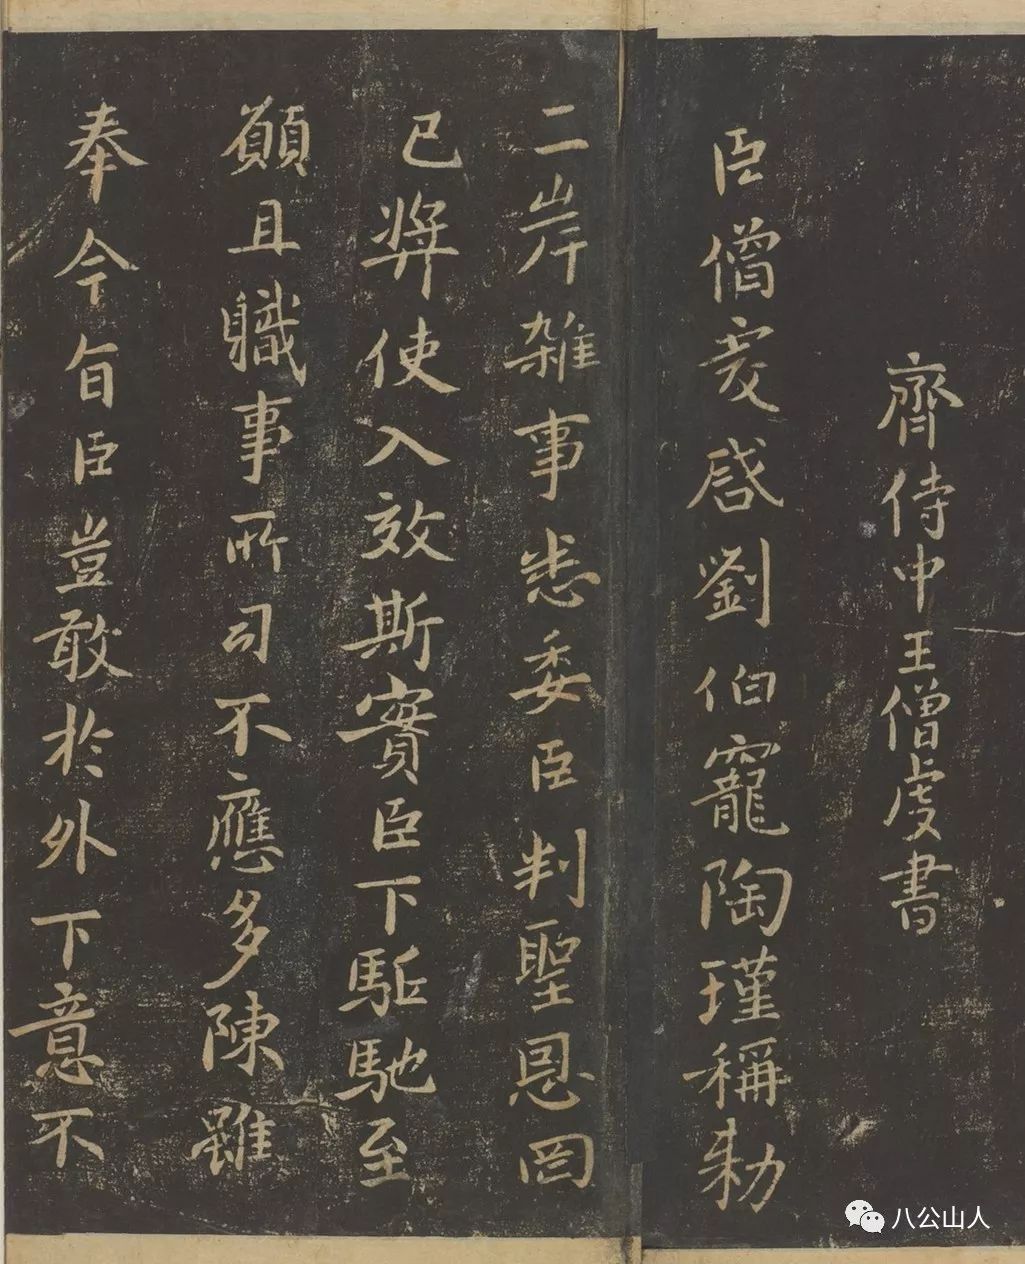 齊侍中王僧虔書
臣僧虔啓劉伯寵陶瑾稱勑
二岸雜事悉委臣判聖恩罔
已奬使入效斯實臣下駈馳至
願且職事所司不應多陳雖
奉今旨臣豈敢於外下意不
八公山人